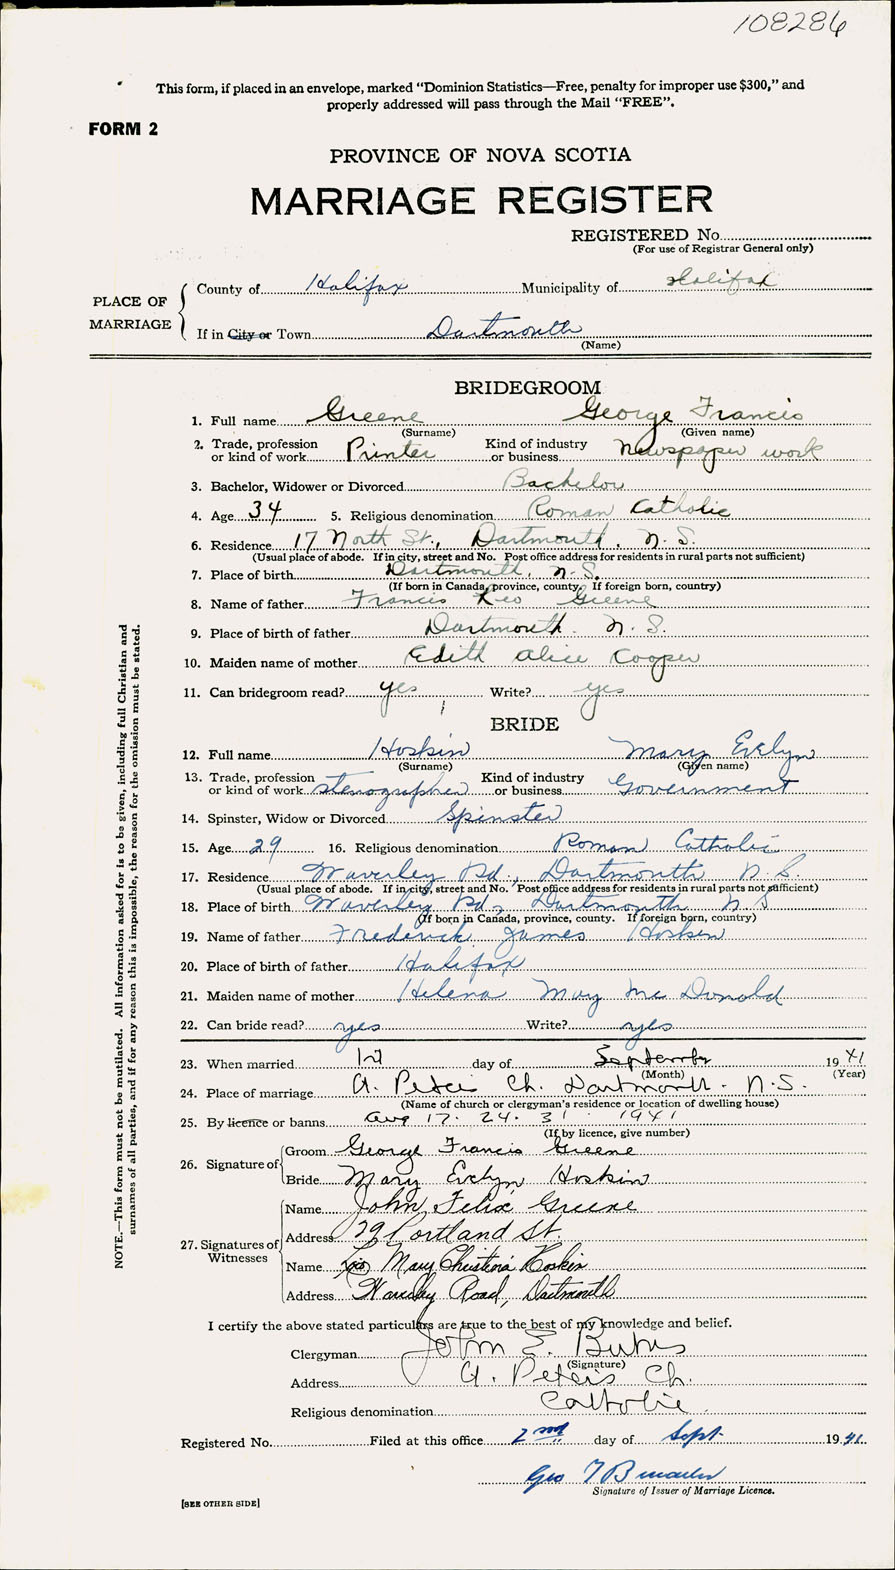 108286
This form, if placed in an envelope, marked "Dominion Statistics—Free, penalty for improper use $300," and
properly addressed will pass through the Mail "FREE".
FORM 2
PROVINCE OF NOVA SCOTIA
MARRIAGE REGISTER
REGISTERED No.
(For use of Registrar General only)
PLACE OF MARRIAGE
County of Halifax Municipality of Halifax
If in City or Town Dartmouth
(Name)
BRIDEGROOM
1. Full name Greene George Francis
(Surname) (Given name)
2. Trade, profession or kind of work Printer Kind of industry or business newspaper work
3. Bachelor, Widower or Divorced Bachelor
4. Age 34 5. Religious denomination Roman Catholic
6. Residence 17 North St., Dartmouth, N.S.
(Usual place of abode. If in city, street and No. Post office address for residents in rural parts not sufficient)
7. Place of birth Dartmouth, N.S.
(If born in Canada, province, county. If foreign born, country)
8. Name of father Francis Leo Greene
9. Place of birth of father Dartmouth. N.S.
10. Maiden name of mother Edith Alice Cooper
11. Can bridegroom read? yes Write? yes
BRIDE
12. Full name Hoskin Mary Evelyn
(Surname) (Given name)
13. Trade, profession or kind of work stenographer Kind of industry or business Government
14. Spinster, Widow or Divorced Spinster
15. Age 29 16. Religious denomination Roman Catholic
17. Residence Waverley Rd., Dartmouth N.S.
(Usual place of abode. If in city, street and No. Post office address for residents in rural parts not sufficient)
18. Place of birth Waverley Rd., Dartmouth N S
(If born in Canada, province, county. If foreign born, country)
19. Name of father Frederick James Hoskin
20. Place of birth of father Halifax
21. Maiden name of mother Helena May McDonald
22. Can bride read? yes Write? yes
23. When married 1st day of September 1941
(Month) (Year)
24. Place of marriage St. Peter's Ch. Dartmouth. N.S.
(Name of church or clergyman's residence or location of dwelling house)
25. By licence or banns Aug 17. 24. 31 1941
(If by licence, give number)
26. Signature of
Groom George Francis Greene
Bride Mary Evelyn Hoskin
27. Signatures of Witnesses
Name John Felix Greene
Address 79 Portland St.
Name Mary Christina Hoskin
Address Waverley Road, Dartmouth
I certify the above stated particulars are true to the best of my knowledge and belief.
Clergyman John E. Burns
(Signature)
Address St. Peter's Ch.
Religious denomination Catholic.
Registered No. Filed at this office 2nd day of Sept. 1941.
Geo
Signature of Issuer of Marriage Licence.
[SEE OTHER SIDE]
NOTE.—This form must not be mutilated. All information asked for is to be given, including full Christian and
surnames of all parties, and if for any reason this is impossible, the reason for the omission must be stated.